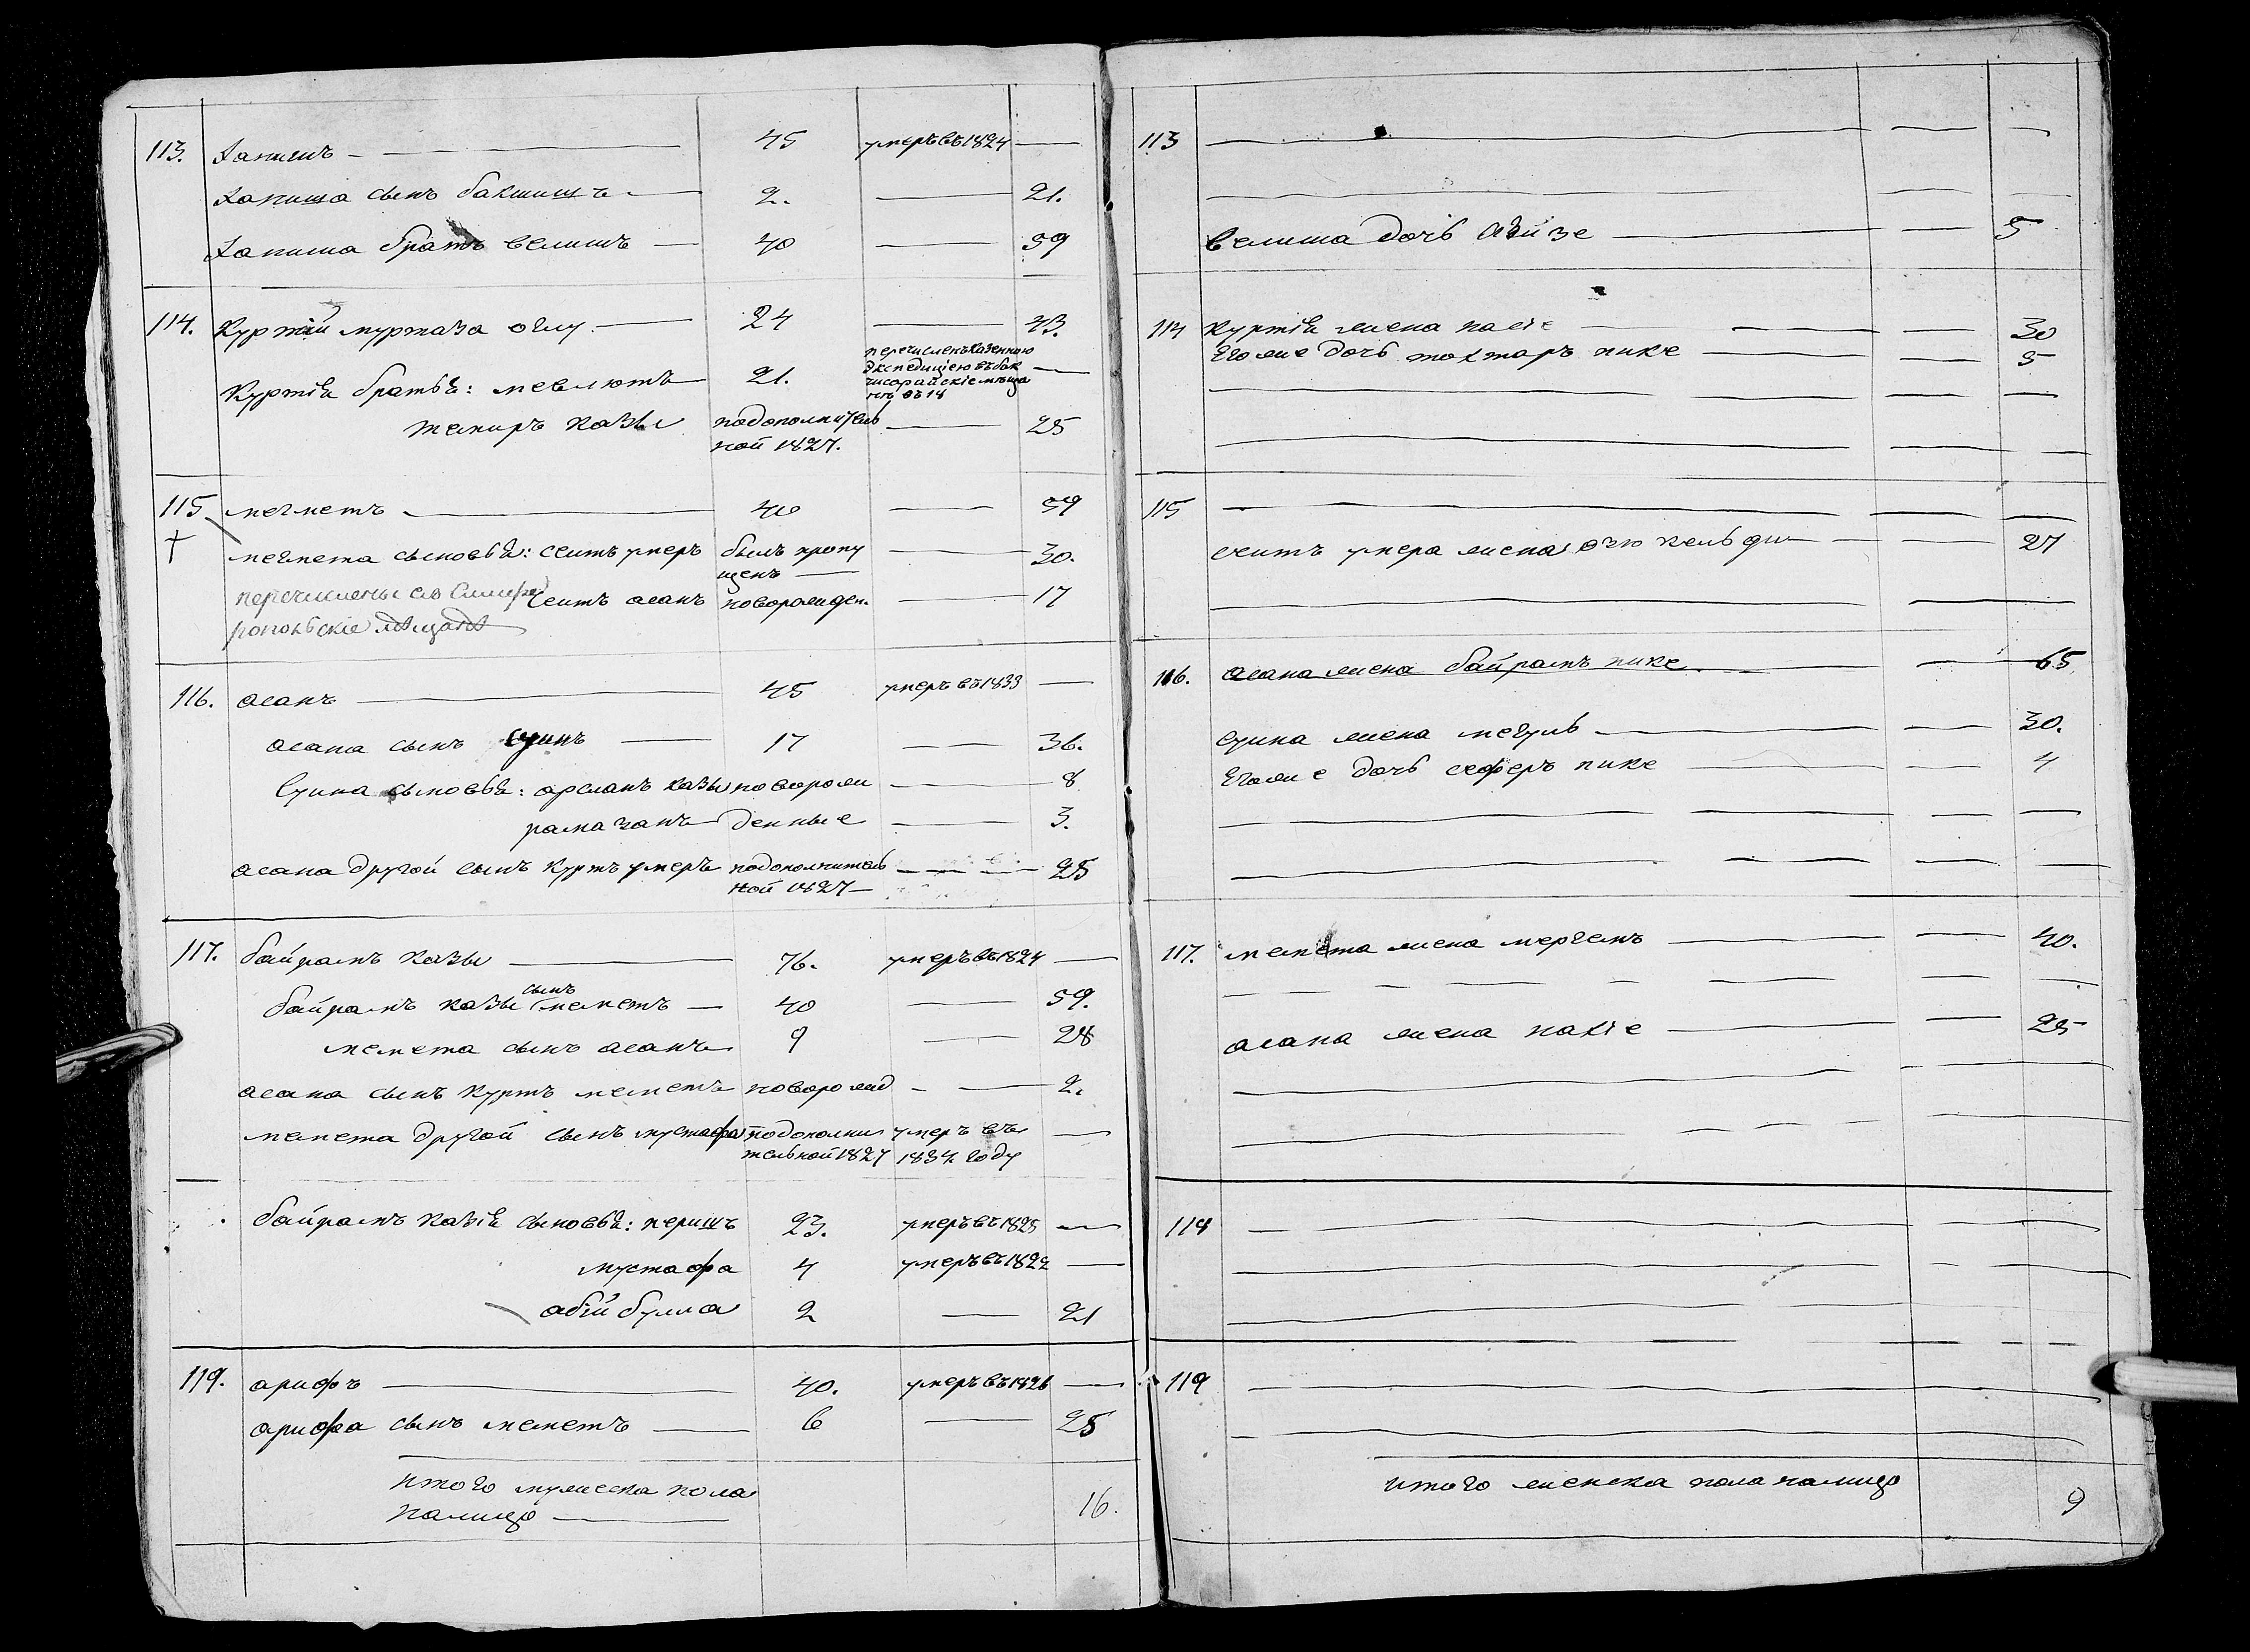 113. Хапишъ 45 умеръ въ 1824
Хапиша сынъ бакшишъ 2. 21.
Хапиша братъ велишъ 40 59
114. Куртій муртаза оглу 24 43.
Куртія братья: мевлютъ 21. перечисленъ казенною
экспедиціею въ бах
чисарайскіе мѣща
не въ 18
темиръ казы подополнитель 25
ной 1827.
115 мегметъ 40 59
† мегмета сыновья: сеитъ умеръ былъ пропу 30.
щенъ
перечислены въ Симфе
сеитъ асанъ новорожден. 17
ропольскіе мѣщане
116. асанъ 45 умеръ въ 1833
асана сынъ суинъ 17 36.
Суина сыновья: арсланъ казы новорож 8
рамазанъ денные 3.
асана другой сынъ куртъ умеръ подополнитель 25
ной 1827
117. байрамъ казы 76. умеръ въ 1824
сынъ
байрамъ казы меметъ 40 59.
мемета сынъ асанъ 9 28
асана сынъ куртъ меметъ новорожд 2.
мемета другой сынъ мустафа подополни умеръ въ
тельной 1827 1834 году
байрамъ казія сыновья: перишъ 23. умеръ въ 1825
мустафа 4 умеръ въ 1822
абій булла 2 21
119. арифъ 40. умеръ въ 1826
арифа сынъ меметъ 6 25
итого мужеска пола
налицо 16.
113
велиша дочь азизе 5
114 куртія жена насіе 30
Егоже дочь тохтаръ пике 5
115
сеитъ умера жена огю кельди 27
116. асана жена байрамъ пике 65
суина жена мегуль 30.
Егоже дочь сеферъ пике 4
117. мемета жена мергемъ 40.
асана жена накіе 25
118
119
итого женска пола налицо 9